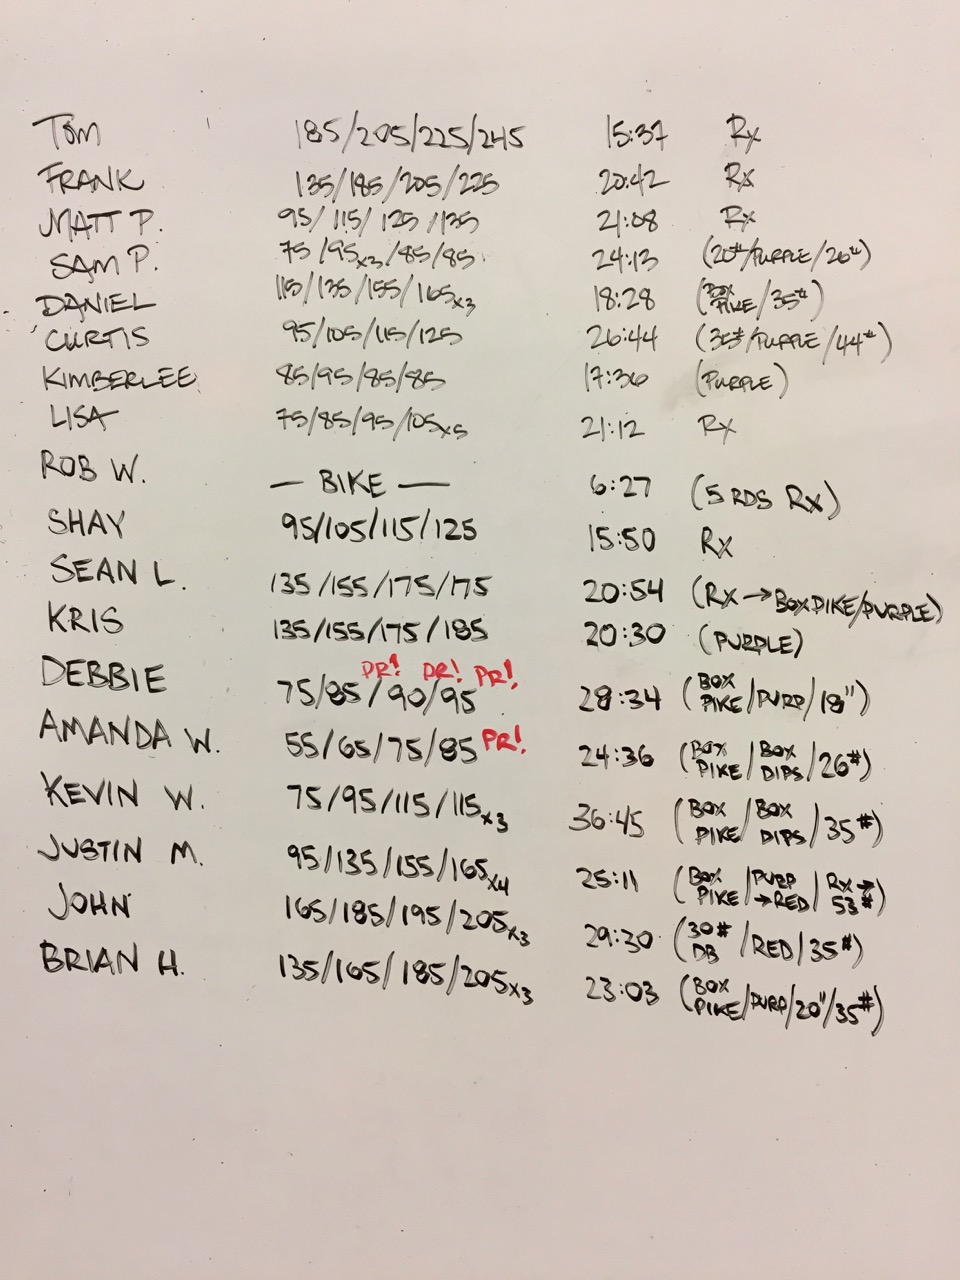 Tom 185/205/225/245 15:37 Rx
FRANK 135/185/205/225 20:42 Rx
MATT P. 95/115/125/135 21:08 Rx
SAM P. 75/95x3/85/85 24:13 (20#/PURPLE/26#)
DANIEL 115/135/155/165x3 18:28 (BOX PIKE/35#)
CURTIS 95/105/115/125 26:44 (35#/PURPLE/44#)
KIMBERLEE 85/95/85/85 17:36 (PURPLE)
LISA 75/85/95/105x5 21:12 Rx
ROB W. — BIKE — 6:27 (5 RDS Rx)
SHAY 95/105/115/125 15:50 Rx
SEAN L. 135/155/175/175 20:54 (Rx → BOX PIKE/PURPLE)
KRIS 135/155/175/185 20:30 (PURPLE)
PR! PR! PR!
DEBBIE 75/85/90/95 28:34 (BOX PIKE/PURP/18")
AMANDA W. 55/65/75/85 PR! 24:36 (BOX PIKE/BOX DIPS/26#)
KEVIN W. 75/95/115/115x3 36:45 (BOX PIKE/BOX DIPS/35#)
JUSTIN M. 95/135/155/165x4 25:11 (BOX PIKE/PURP → RED/Rx → 53#)
JOHN 165/185/195/205x3 29:30 (30# DB/RED/35#)
BRIAN H. 135/165/185/205x3 23:03 (BOX PIKE/PURP/20"/35#)